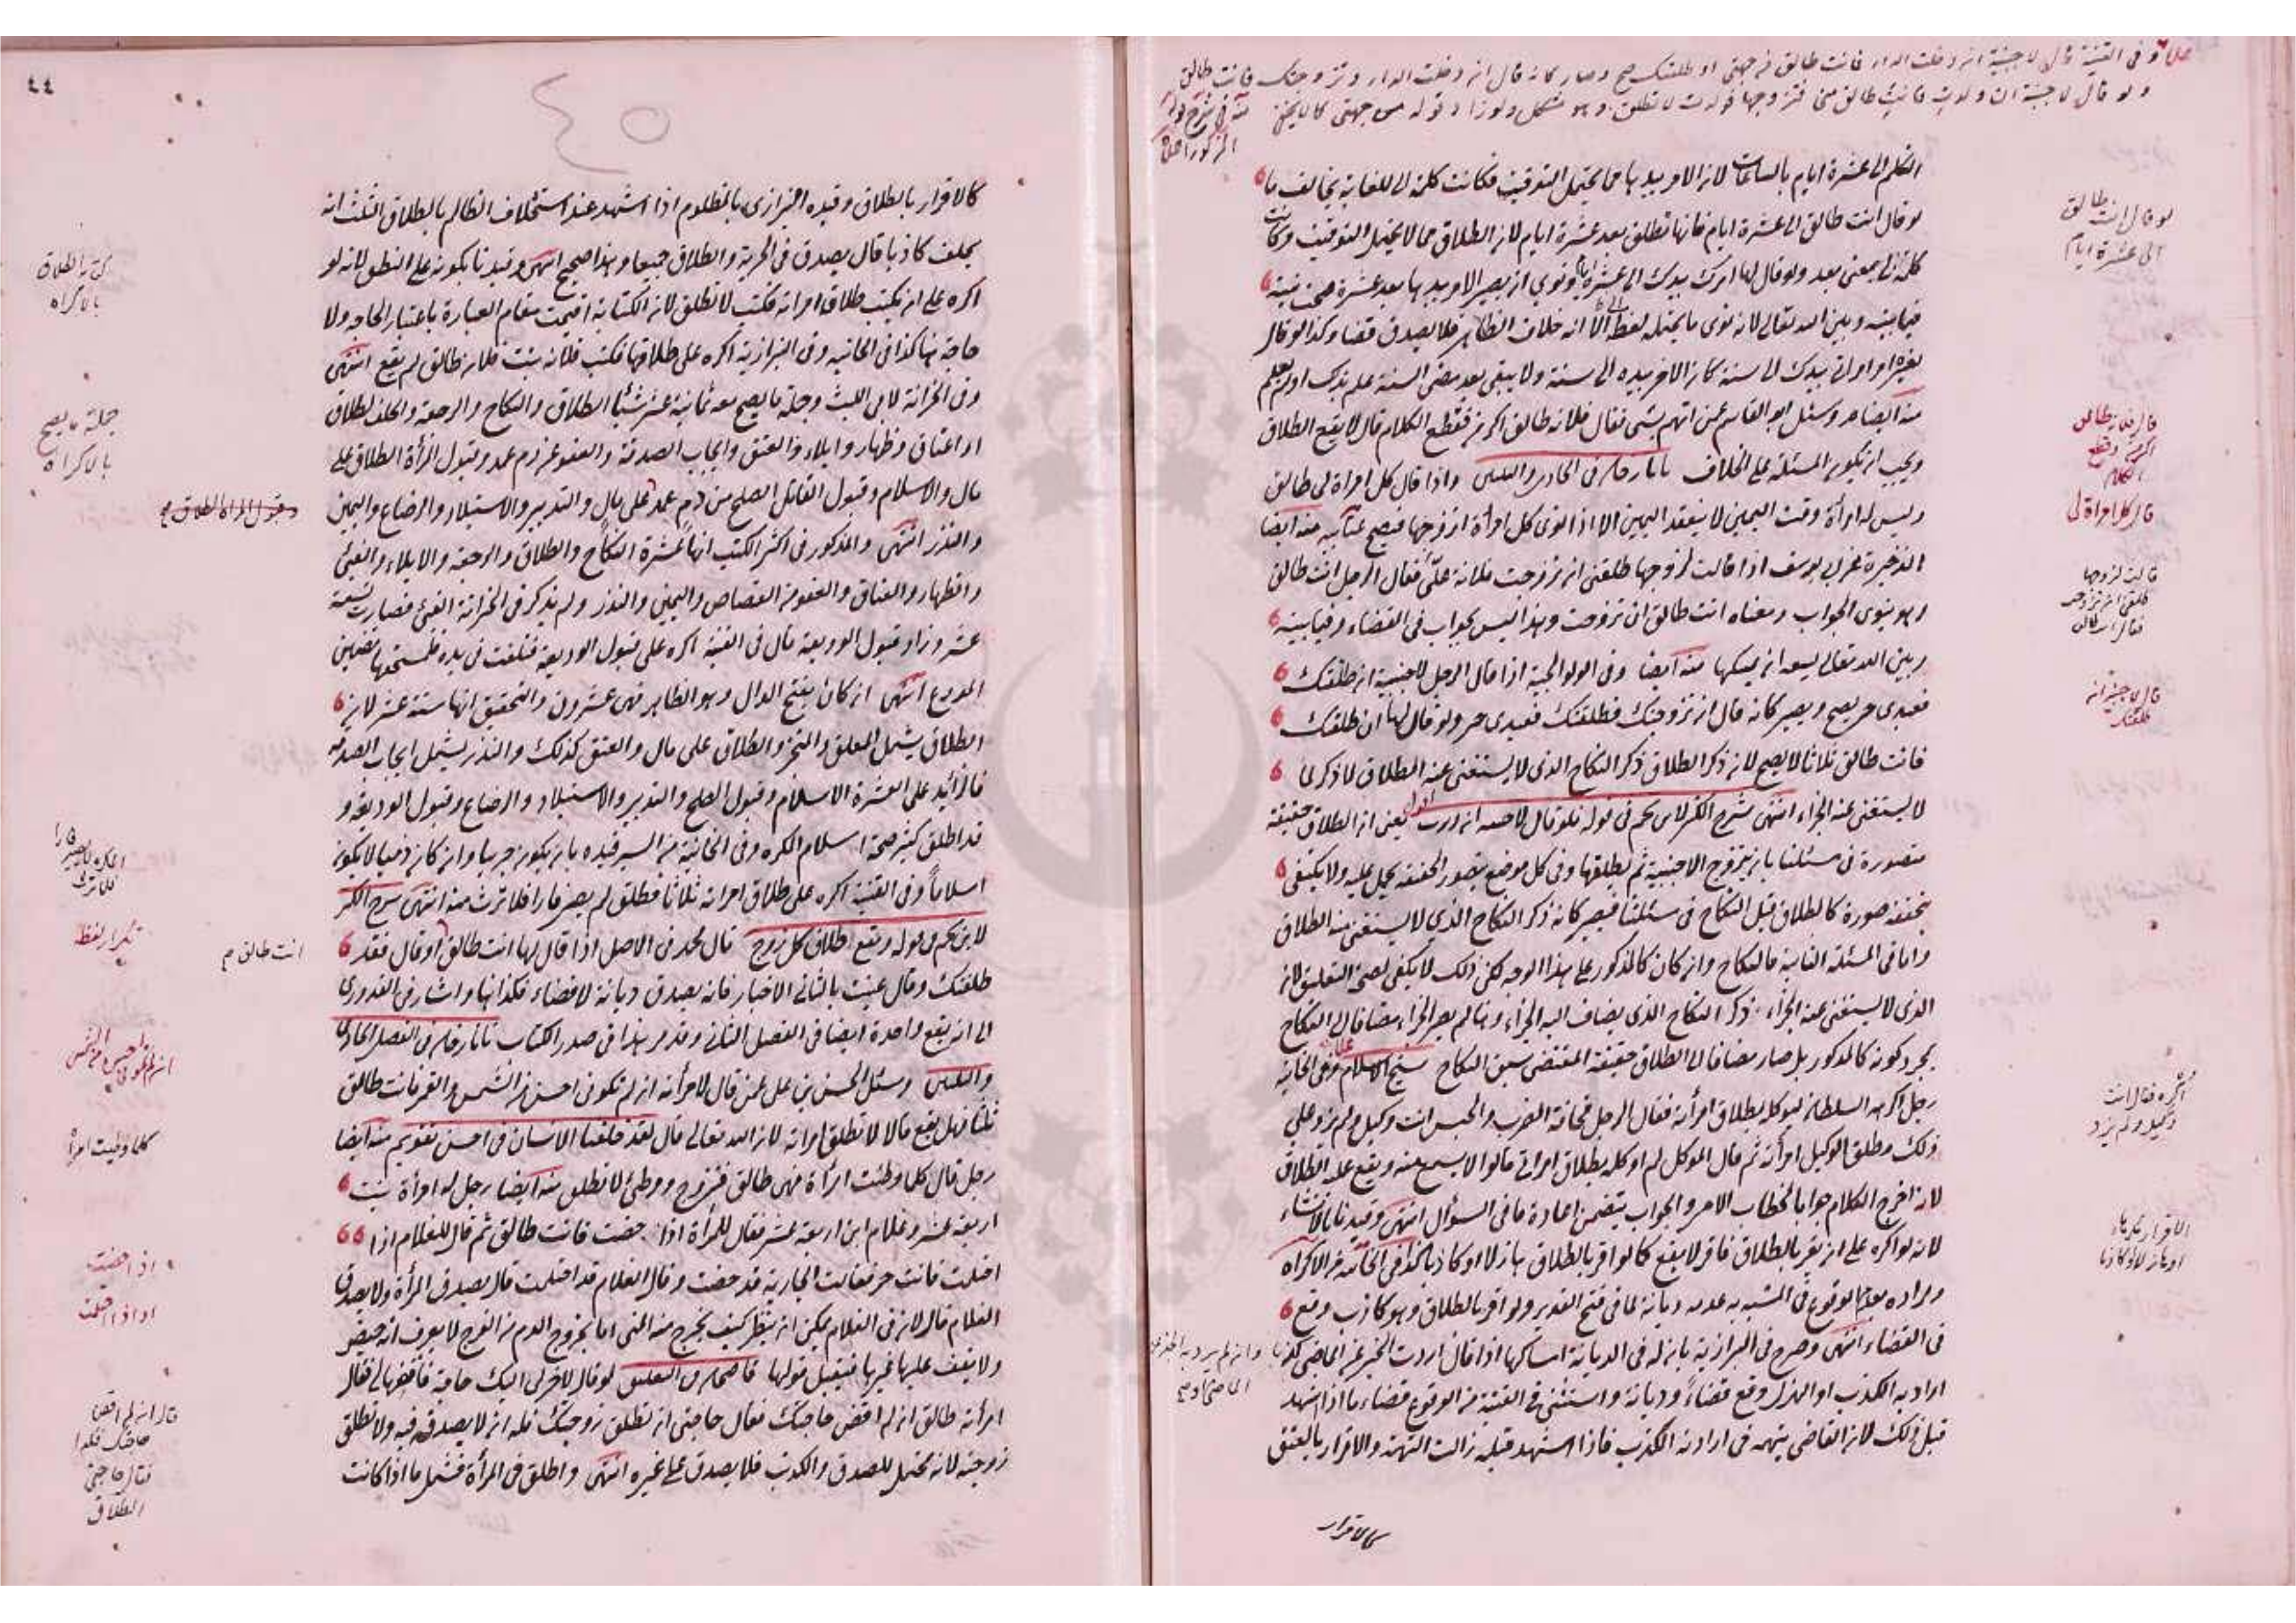 وفى القنية قال لاجنبية ان دخلت الدار فانت طالق من جهتى او طلقتك صح وصار كانه قال ان دخلت الدار وتزوجتك فانت طالق
ولو قال لاجنبية ان ولدت فانت طالق منى فتزوجها فولدت لا تطلق وهو مشكل قوله من جهتى كما لا يخفى
التكلم الى عشرة ايام بالساعات لان الامر بيدها مما يحتمل التوقيت فكانت كلمة الى للغاية بخالف ما
لو قال انت طالق الى عشرة ايام فانها تطلق بعد عشرة ايام لان الطلاق مما لا يحتمل التوقيت وكانت
كلمة الى بمعنى بعد ولو قال لها امرك بيدك الى عشرة ايام ونوى ان يصير الامر بيدها بعد عشرة صحت نيته
فيما بينه وبين الله تعالى لانه نوى ما يحتمله لفظ الى الا انه خلاف الظاهر فلا يصدق قضاء وكذا لو قال
امراتى بيدك الى سنة كان الامر بيده الى سنة ولا يبقى بعد مضى السنة علم بذلك او لم يعلم
منه ايضا وسئل ابو القاسم عمن اتهم بشئ فقال فلانة طالق اكر من فقطع الكلام قال لا يقع الطلاق
ويجب ان يكون المسئلة على الخلاف تاتارخان فى الحادى والثلثين واذا قال كل امراة لى طالق
وليس له امرأة وقت اليمين لا ينعقد اليمين الا اذا نوى كل امرأة اتزوجها فيصح منه ايضا
الذخيرة عن ابى يوسف اذا قالت لزوجها طلقنى ان تزوجت فلانة علىّ فقال الرجل انت طالق
وهو ينوى الجواب ومعناه انت طالق ان تزوجت وهذا ليس بجواب فى القضاء وفيما بينه
وبين الله تعالى يسعه ان يمسكها منه ايضا وفى الولوالجية اذا قال الرجل لاجنبية ان طلقتك
فعبدى حر يصح ويصير كانه قال ان تزوجتك فطلقتك فعبدى حر ولو قال لها ان طلقتك
فانت طالق ثلاثا لا يصح لان ذكر الطلاق ذكر النكاح الذى لا يستغنى عنه الطلاق لا ذكر لما
لا يستغنى عنه الجزاء انتهى شرح الكنز لابن نجم فى قوله فلو قال لاجنبية ان زرت اقول يعنى ان الطلاق حقيقة
متصورة فى مسئلتنا بان يتزوج الاجنبية ثم يطلقها وفى كل موضع يتصور الحقيقة يحمل عليه ولا يكتفى
بحقيقة صورة كالطلاق قبل النكاح فى مسئلتنا فيصير كانه ذكر النكاح الذى لا يستغنى عنه الطلاق
واما فى المسئلة الثانية فالنكاح وان كان كالمذكور على هذا الوجه لكن ذلك لا يكفى لصحة التعليق لان
الذى لا يستغنى عنه الجزاء ذكر النكاح الذى يضاف اليه الجزاء وهنا لم يصر الجزاء مضافا الى النكاح
بمجرد كونه كالمذكور بل صار مضافا الى الطلاق حقيقة المقتضى سبق النكاح شيخ الاسلام وفى الخانية
رجل اكرهه السلطان ليوكله بطلاق امرأته فقال الرجل مخافة الضرب والحبس انت وكيلى ولم يزد على
ذلك وطلق الوكيل امرأته ثم قال الموكل لم اوكله بطلاق امراتى قالوا لا يسمع منه ويقع عليه الطلاق
لانه اخرج الكلام جوابا لخطاب الامر والجواب يتضمن اعادة ما فى السؤال انتهى وقيدنا بالانشاء
لانه لو اكره على ان يقر بالطلاق فاقر لا يقع كما لو اقر بالطلاق هازلا او كاذبا كذا فى الخانية من الاكراه
ومراده بعدم الوقوع فى المشبه به عدمه ديانة لما فى فتح القدير ولو اقر بالطلاق وهو كاذب وقع
فى القضاء انتهى وصرح فى البزازية بان له فى الديانة امساكها اذا قال اردت الخبر عن الماضى كذبا
اراد به الكذب او الهزل وقع قضاءً وديانة واستثنى فى القنية من الوقوع قضاء ما اذا شهد
قبل ذلك لان القاضى يتهمه فى ارادته الكذب فاذا استشهد قبله زالت التهمة والاقرار بالعتق
كالاقرار
لو قال انت طالق
الى عشرة ايام
قال فلانة طالق
اكر من وقطع
الكلام
قال كل امراة لى
قالت لزوجها
طلقنى ان تزوجت
فقال انت طالق
قال لاجنبية ان
طلقتك
اكره فقال انت
وكيلى ولم يزد
الاقرار مكرها
او هازلا او كاذبا
٤٤
٤٥
كالاقرار بالطلاق وقيده البزازى بالمظلوم اذا اشهد عند استحلاف الظالم بالطلاق الثلث انه
يحلف كاذبا قال يصدق فى الحرية والطلاق جميعا وهذا صحيح انتهى وقيدنا بكونه على النطق لانه لو
اكره على ان يكتب طلاق امراته فكتب لا تطلق لان الكتابة اقيمت مقام العبارة باعتبار الحاجة ولا
حاجة هنا كذا فى الخانية وفى البزازية اكره على طلاقها فكتب فلانة بنت فلان طالق لم يقع انتهى
وفى الخزانة لابى الليث وجملة ما يصح معه ثمانية عشر شيئا الطلاق والنكاح والرجعة والحلف بطلاق
او اعتاق وظهار وايلاء والعتق وايجاب الصدقة والعفو عن دم عمد وقبول المرأة الطلاق على
مال والاسلام وقبول القاتل الصلح من دم عمد على مال والتدبير والاستيلاد والرضاع واليمين
والنذر انتهى والمذكور فى اكثر الكتب انها عشرة النكاح والطلاق والرجعة والايلاء والفئ
والظهار والعتاق والعفو من القصاص واليمين والنذر ولم يذكر فى الخزانة الفئ فصارت تسعة
عشر وزاد قبول الوديعة قال فى القنية اكره على قبول الوديعة فتلفت فى يده فلمستحقها تضمين
المودع انتهى ان كان بفتح الدال وهو الظاهر فهى عشرون والتحقيق انها ستة عشر لان
الطلاق يشمل المعلق والمنجز والطلاق على مال والعتق كذلك والنذر يشمل ايجاب الصدقة
فالزائد على العشرة الاسلام وقبول الصلح والتدبير والاستيلاد والرضاع وقبول الوديعة و
قد اطلق كثير صحة اسلام المكره وفى الخانية من السير قيده بان يكون حربيا وان كان ذميا لا يكون
اسلاماً وفى القنية اكره على طلاق امراته ثلاثا فطلق لم يصر فارا فلا ترث منه انتهى شرح الكنز
لابن نجم فى قوله ويقع طلاق كل زوج قال محمد فى الاصل اذا قال لها انت طالق او قال فقد
طلقتك وقال عنيت بالثانى الاخبار فانه يصدق ديانة لا قضاء هكذا هنا واشار فى القدورى
الى انه يقع واحدة ايضا فى الفصل الثانى وقد مر هذا فى صدر الكتاب تاتارخان فى الفصل الحادى
والثلثين وسئل الحسن بن على عمن قال لامرأته ان لم تكونى احسن من الشمس والقمر فانت طالق
ثلثا فهل يقع قالا لا تطلق امراته لان الله تعالى قال لقد خلقنا الانسان فى احسن تقويم منه ايضا
رجل قال كلما وطئت امرأة فهى طالق فتزوج ووطئ لا تطلق منه ايضا رجل له امرأة بنت
اربعة عشر وغلام ابن اربعة عشر فقال للمرأة اذا حضت فانت طالق ثم قال للغلام اذا
احتلمت فانت حر فقالت الجارية قد حضت وقال الغلام قد احتلمت قال يصدق المرأة ولا يصدق
الغلام قال لان فى الغلام يمكن ان ينظر كيف يخرج منه المنى اما بخروج الدم من الفرج لا يعرف انه حيض
ولا يقف عليها غيرها فيقبل قولها قاضيخان فى التعليق لو قال لاخر لى اليك حاجة فاقضها لى فقال
امرأته طالق ان لم اقض حاجتك فقال حاجتى ان تطلق زوجتك فله ان لا يصدق فيه ولا تطلق
زوجته لانه محتمل للصدق والكذب فلا يصدق على غيره انتهى واطلق فى المرأة فشمل ما اذا كانت
كتب الطلاق
بالاكراه
جملة ما يصح
بالاكراه
وقبول المراة الطلاق
تكرار لفظ
انت طالق
كلما وطيت امرأة
اذا حضت
او اذا احتلمت
قال ان لم اقض
حاجتك فكذا
فقال حاجتى
الطلاق